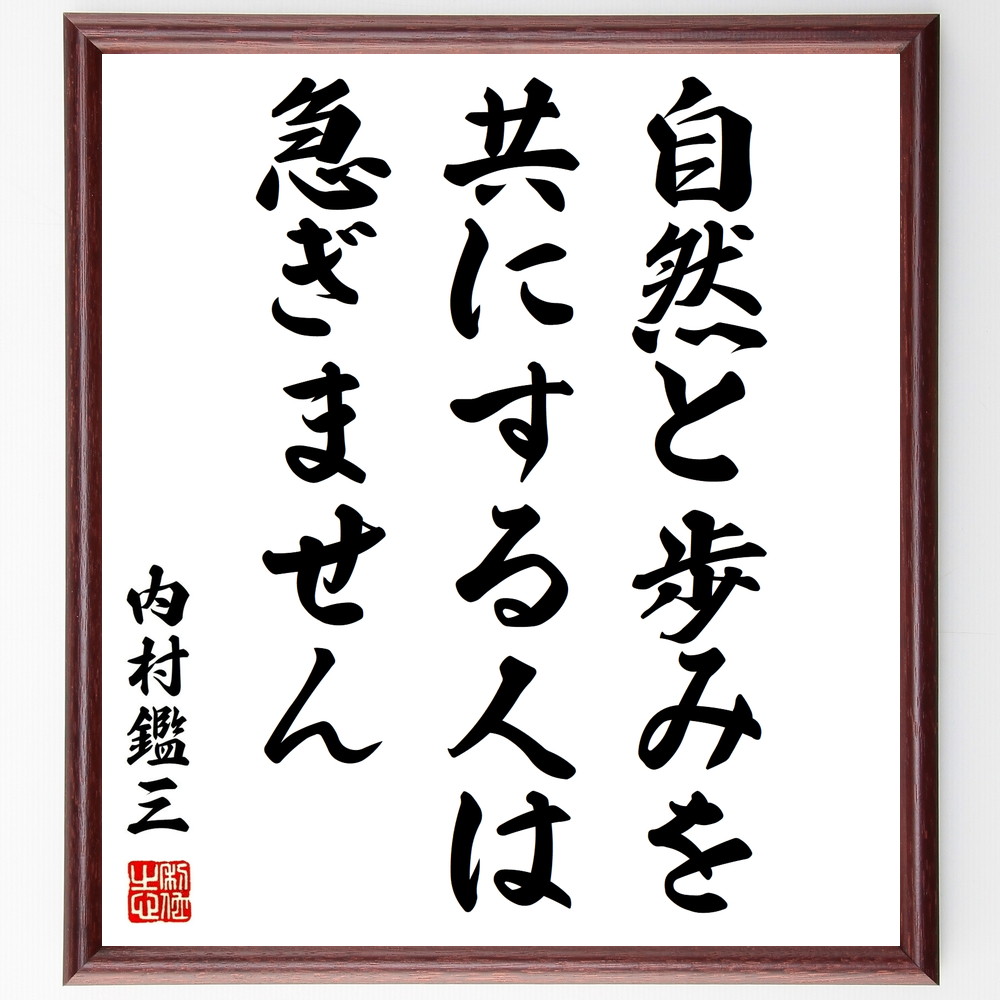 自然と歩みを
共にする人は
急ぎません
内村鑑三